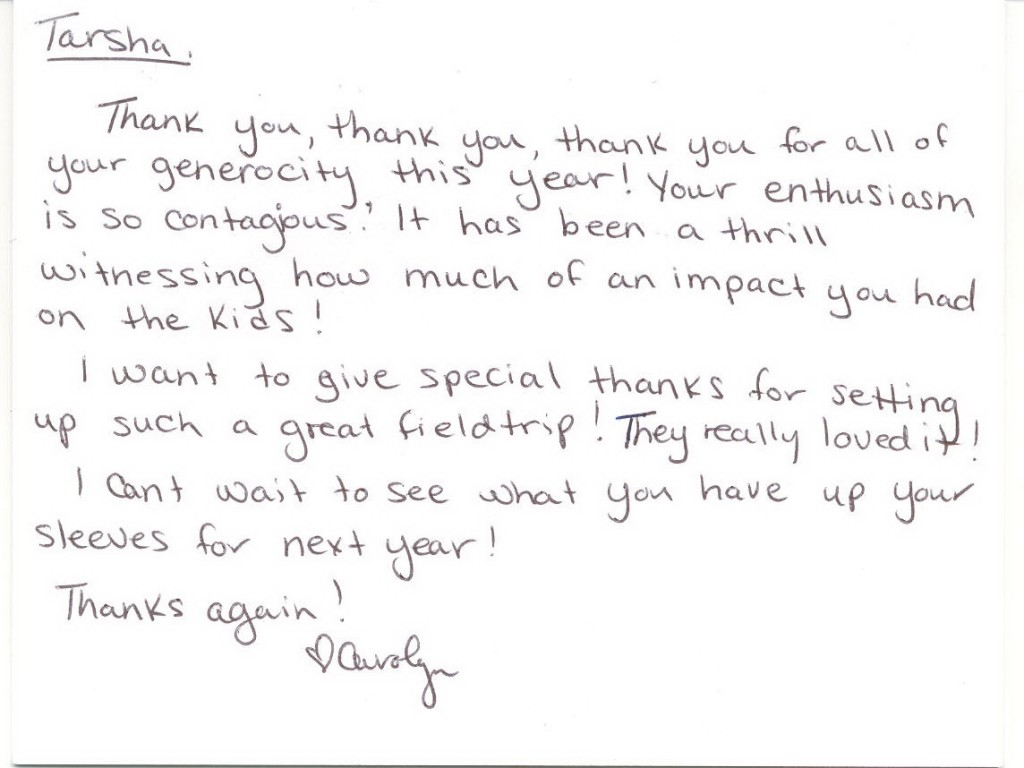 Tarsha.
Thank you, thank you, thank you for all of
your generocity this year! Your enthusiasm
is so contagious! It has been a thrill
witnessing how much of an impact you had
on the kids!
I want to give special thanks for setting
up such a great fieldtrip! They really loved it!
I cant wait to see what you have up your
sleeves for next year!
Thanks again!
♡Carolyn